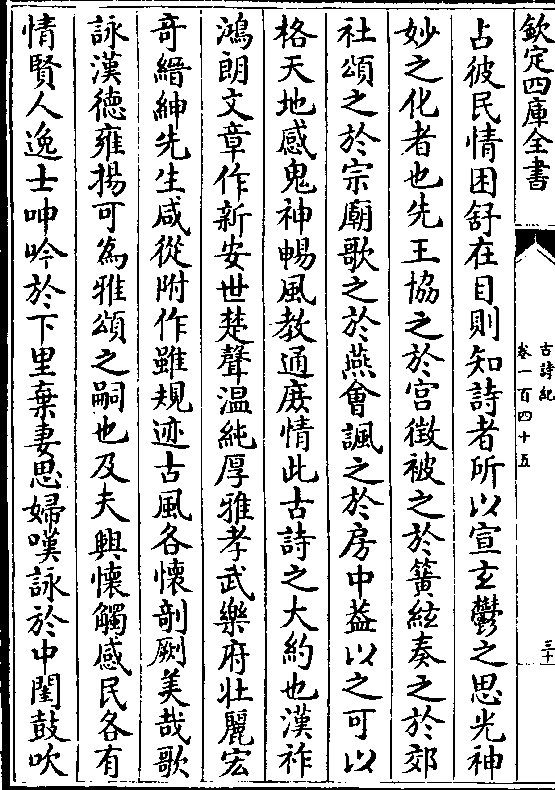 欽定四庫全書
古詩紀
卷一百四十五
三十
占彼民情困舒在目則知詩者所以宣玄鬱之思光神
妙之化者也先王協之於宫徵被之於簧絃奏之於郊
社頌之於宗廟歌之於燕會諷之於房中葢以之可以
格天地感鬼神暢風教通庻情此古詩之大約也漢祚
鴻朗文章作新安世楚聲温純厚雅孝武樂府壯麗宏
竒縉紳先生咸從附作雖規迹古風各懷剞劂美哉歌
詠漢德雍揚可為雅頌之嗣也及夫興懷觸感民各有
情賢人逸士呻吟於下里棄妻思婦嘆詠於中閨鼓吹